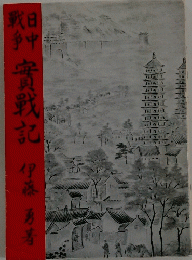 日中戦争
實戰記
伊藤勇著